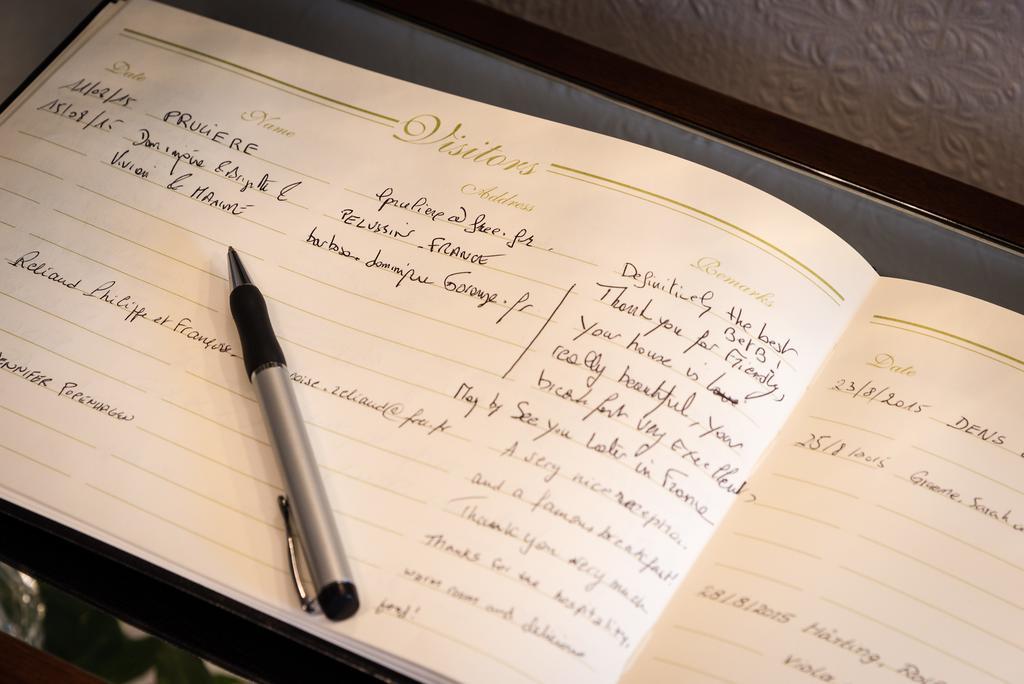 Visitors
Date
Name
Address
Remarks
11/08/15
PRULIERE
15/08/15
Dominique & Brigitte &
Vivian &
lpruliere@free.fr.
PELUSSIN - FRANCE
barbosa.dominique orange.fr
Definitively the best
BetB!
Thank you for Friendly,
Your house is
really beautiful, your
breakfast very Excellent,
May by See you later in France
Reliaud Philippe et Françoise
oise.reliaud@free.fr
A very nice reception..
and a famous breakfast!
Thank you very much
JENNIFER POPENHAGEN
Thanks for the hospitality,
warm room and delicious
food!
Date
23/8/2015 DENS
25/8/2015 Sarah
28/8/2015
Viola